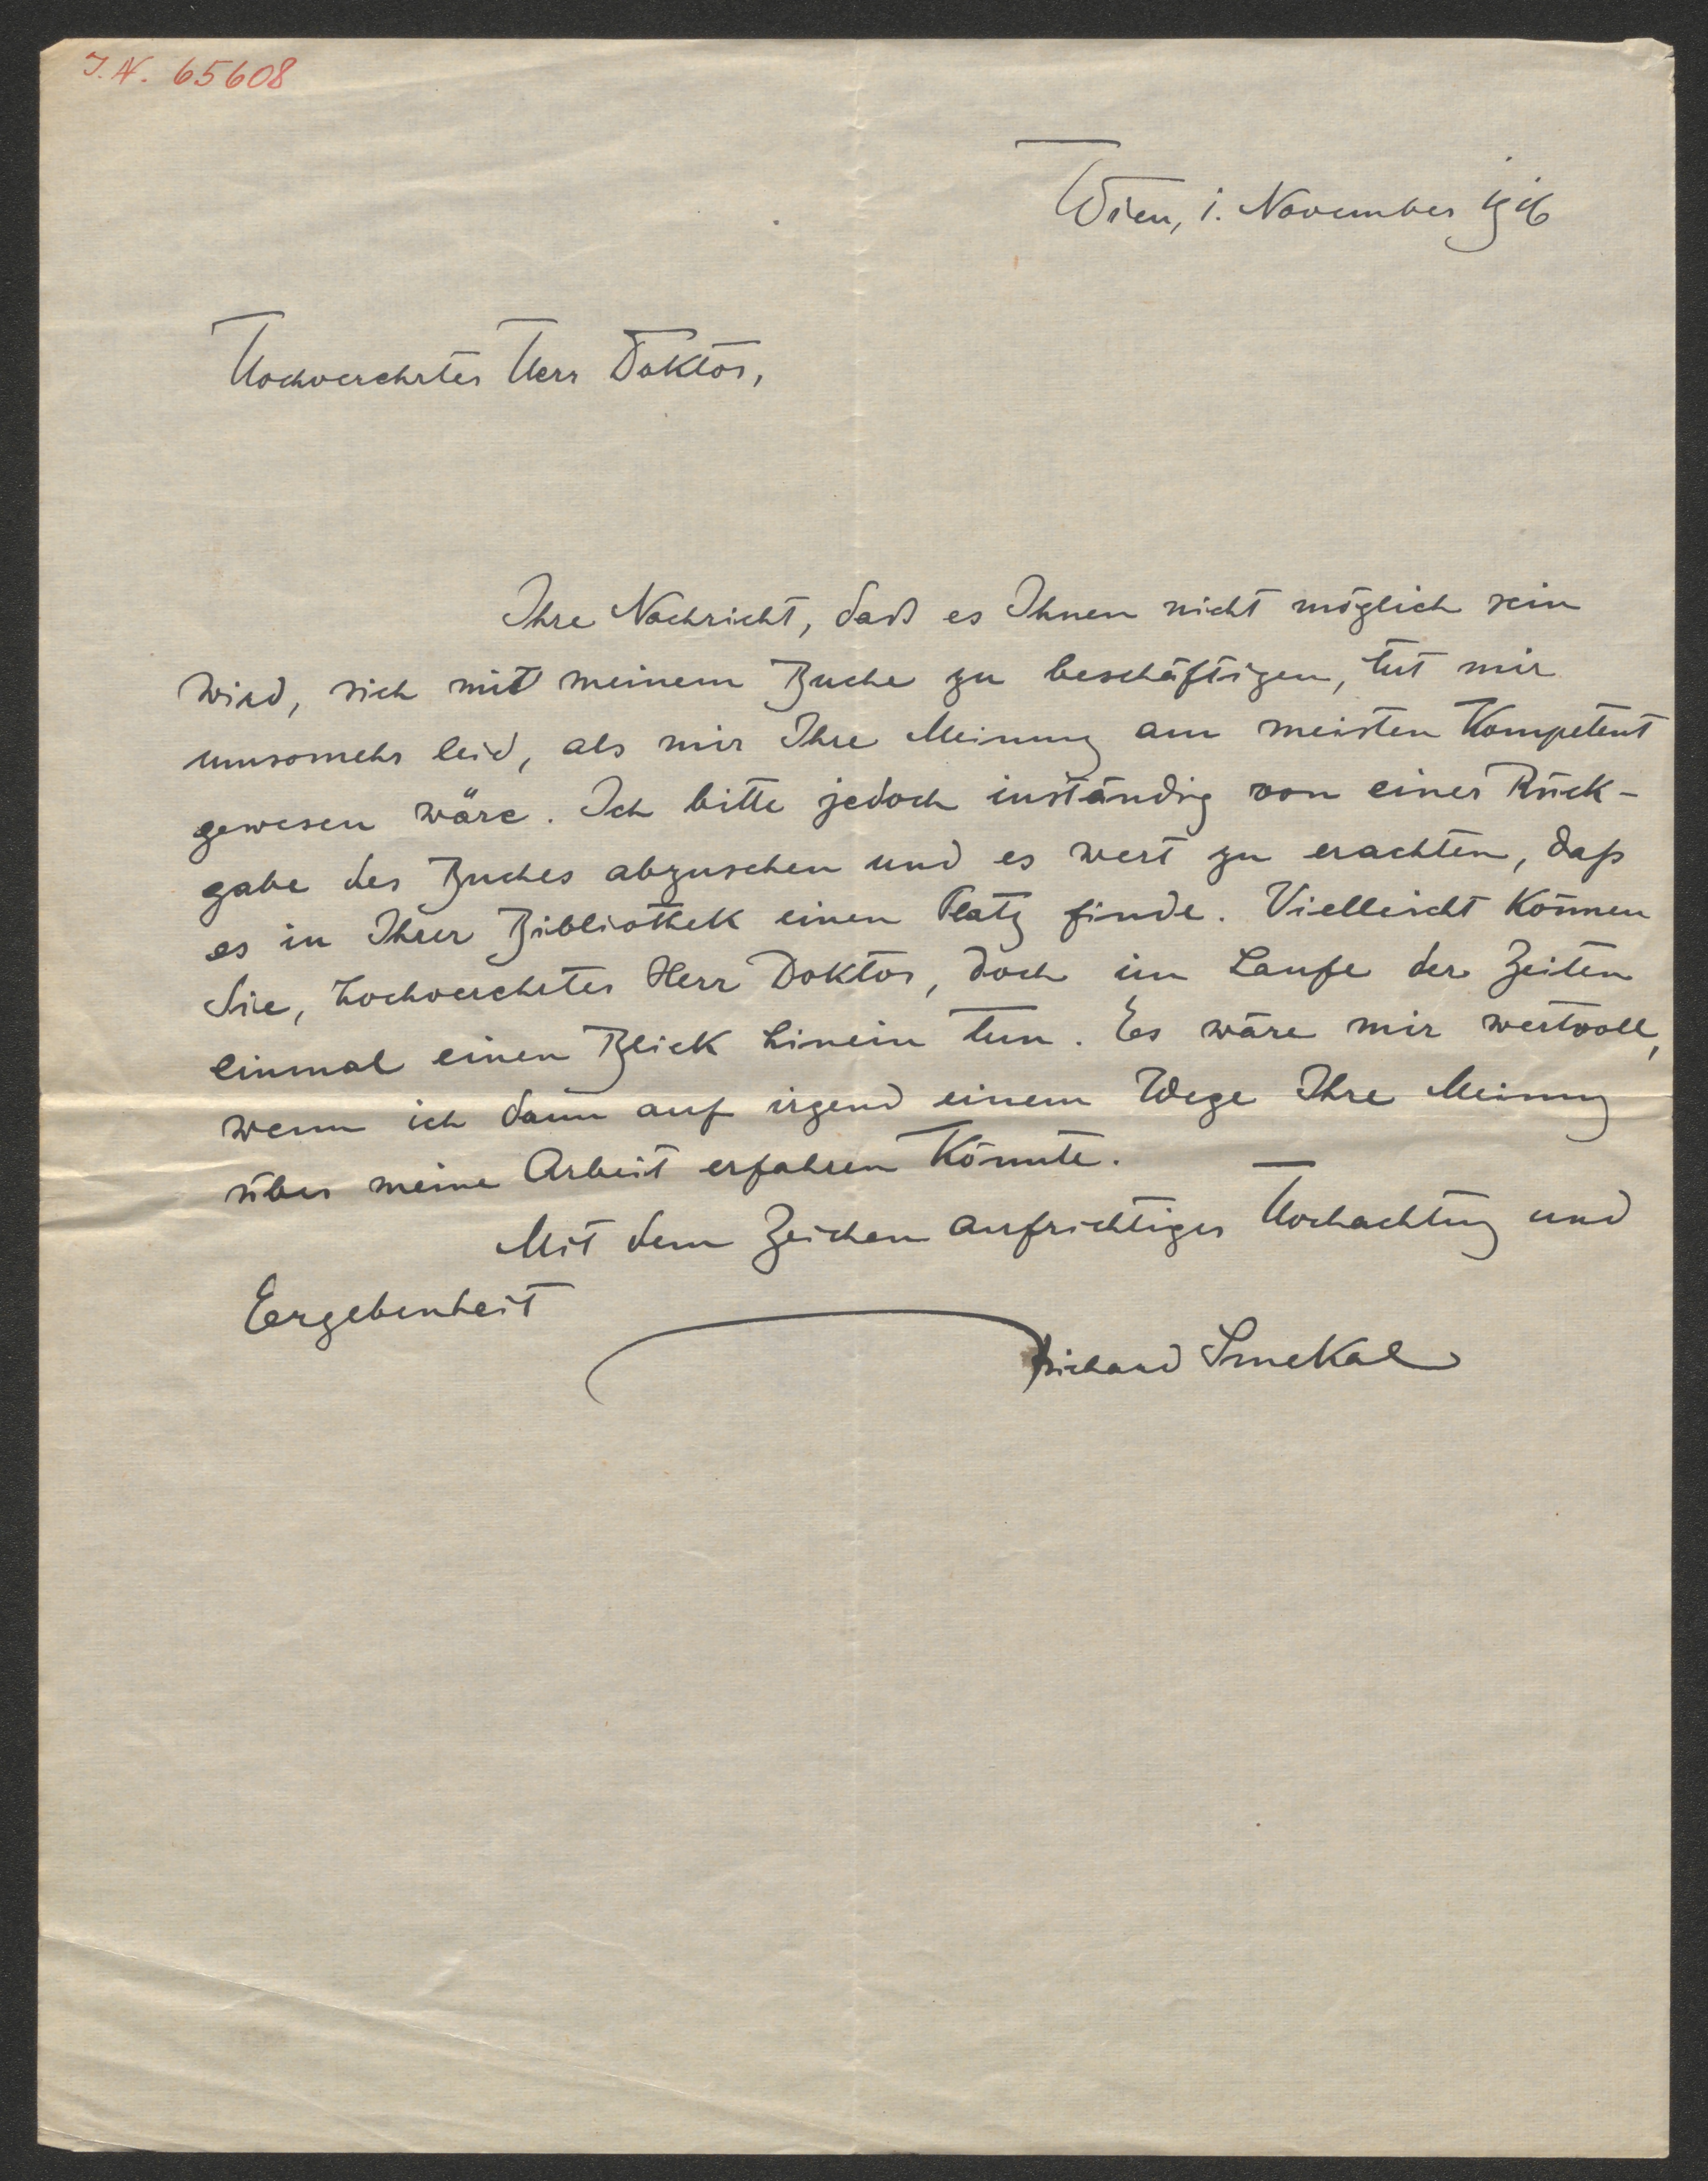 J. N. 65608
Wien, 1. November 1916
Hochverehrter Herr Doktor,
Ihre Nachricht, daß es Ihnen nicht möglich sein
wird, sich mit meinem Buche zu beschäftigen, tut mir
umsomehr leid, als mir Ihre Meinung am meisten kompetent
gewesen wäre. Ich bitte jedoch inständig von einer Rück-
gabe des Buches abzusehen und es wert zu erachten, daß
es in Ihrer Bibliothek einen Platz finde. Vielleicht können
Sie, hochverehrter Herr Doktor, doch im Laufe der Zeiten
einmal einen Blick hinein tun. Es wäre mir wertvoll,
wenn ich dann auf irgend einem Wege Ihre Meinung
über meine Arbeit erfahren könnte.
Mit dem Zeichen aufrichtiger Hochachtung und
Ergebenheit
Richard Smekal